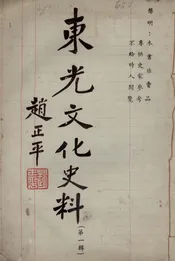 聲明：本書非賣品
專供史家參考
不給時人閱覽
東光文化史料
（第一輯）
趙正平